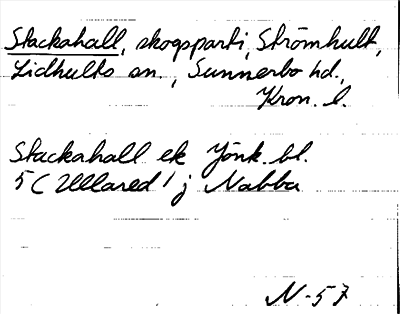 Stackahall, skogsparti, Strömhult,
Lidhults sn., Sunnerbo hd.,
Kron. l.
Stackahall ek Jönk. bl.
5 C Ullared 1 j Nabba
N-57